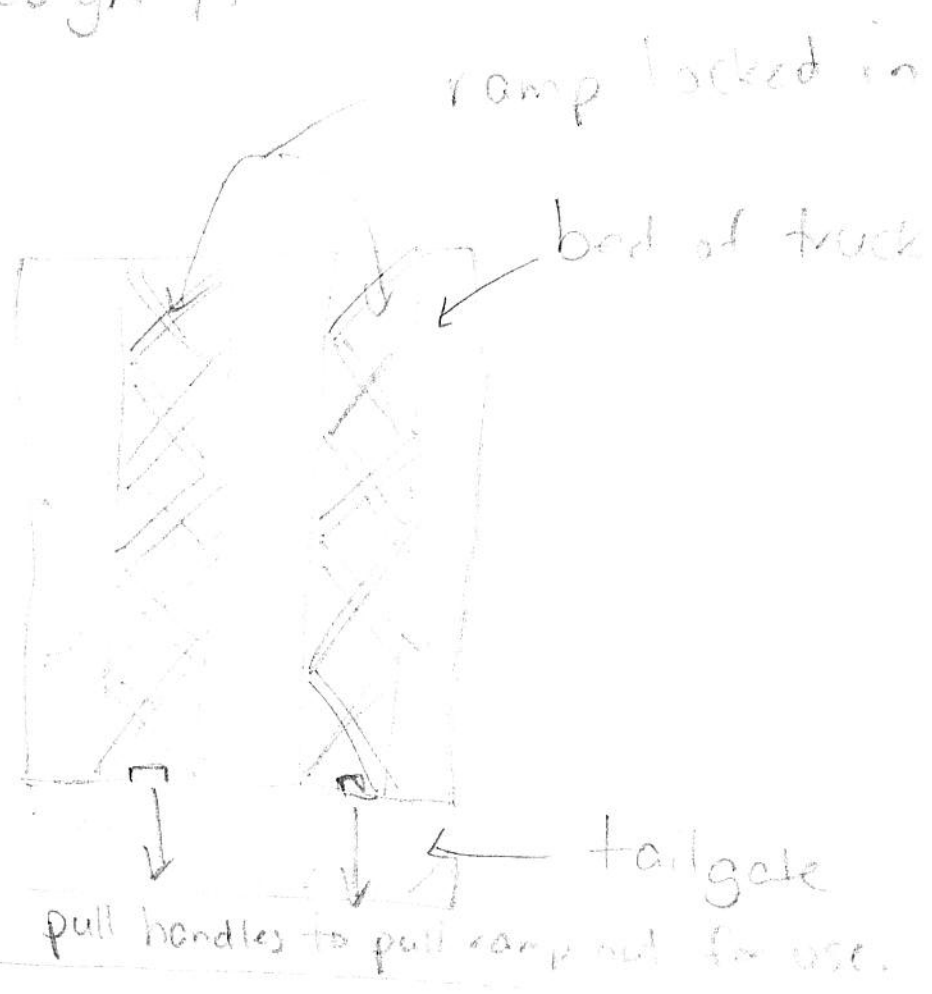 ramp locked in
bed of truck
tailgate
pull handles to pull ramp out for use.